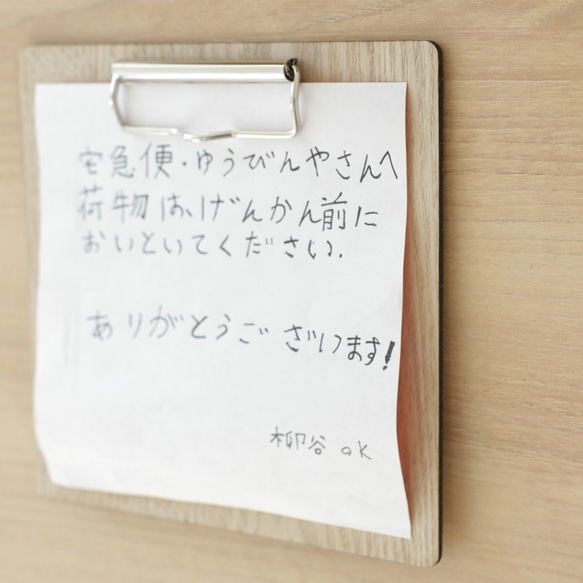 宅急便・ゆうびんやさんへ
荷物は、げんかん前に
おいといてください.
ありがとうございます!
柳谷 OK